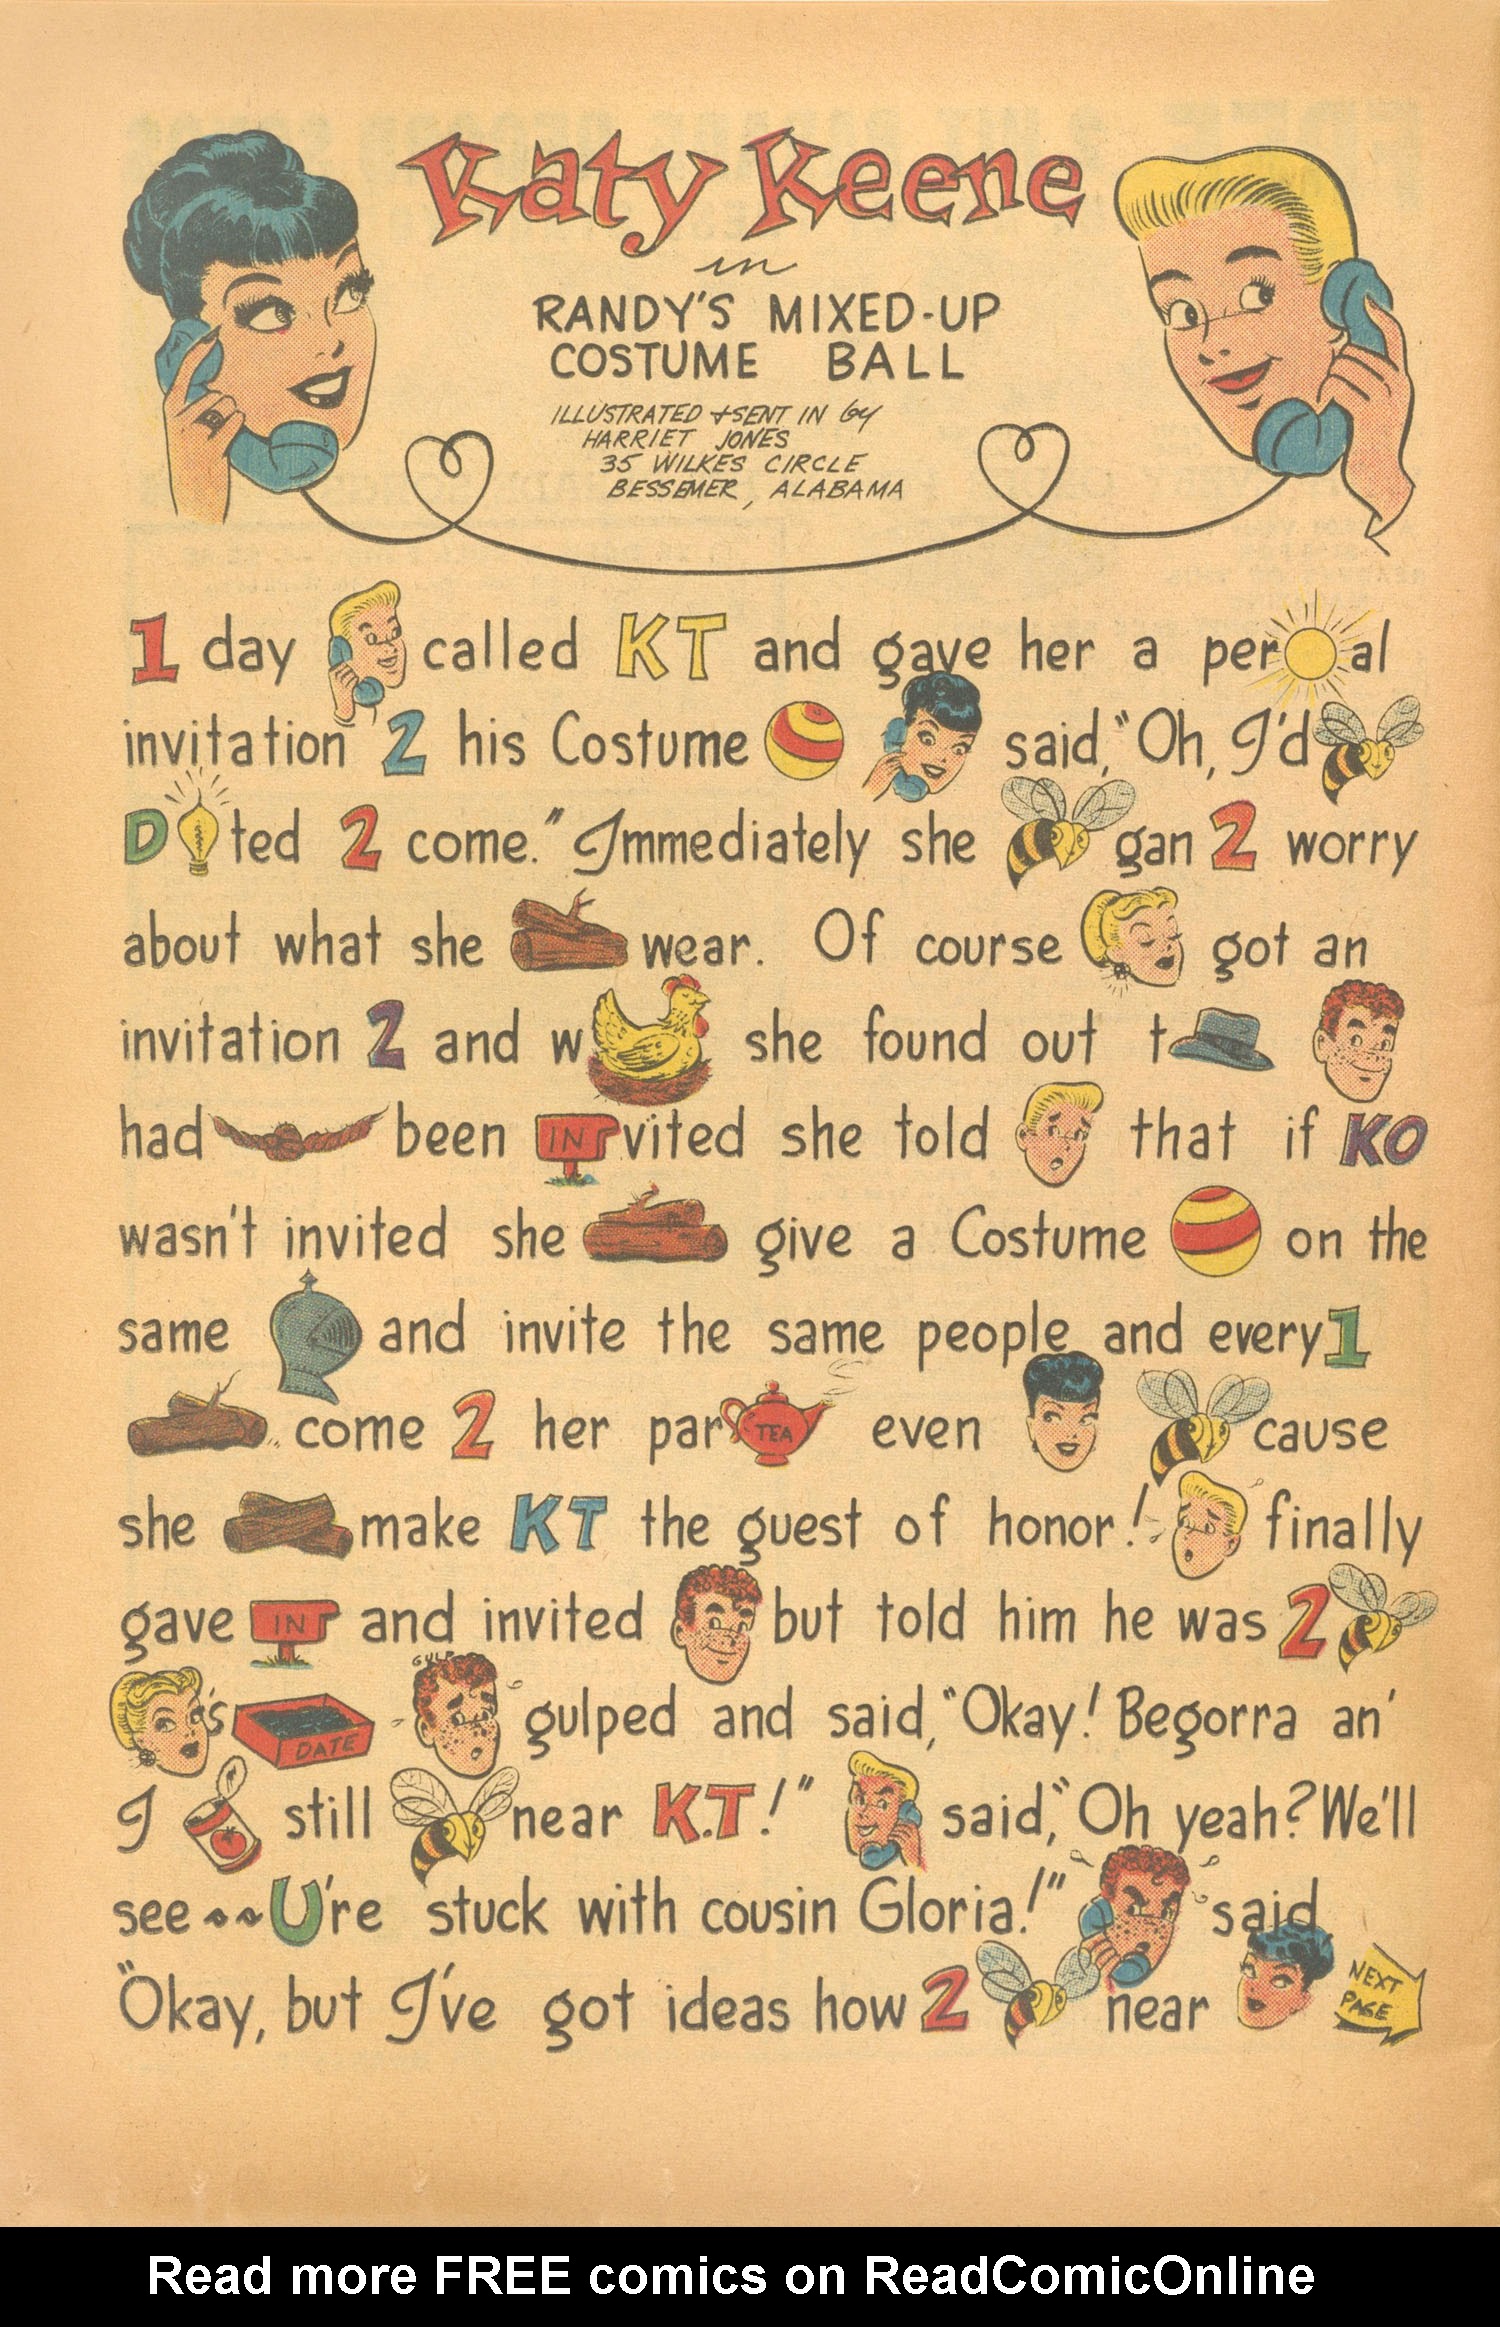 Katy Keene
in
RANDY'S MIXED-UP
COSTUME BALL
ILLUSTRATED & SENT IN by
HARRIET JONES
35 WILKES CIRCLE
BESSEMER, ALABAMA
1 day called KT and gave her a per al
invitation 2 his Costume said, "Oh, I'd
D ted 2 come." Immediately she gan 2 worry
about what she wear. Of course got an
invitation 2 and w she found out t
had been IN vited she told that if KO
wasn't invited she give a Costume on the
same and invite the same people and every 1
come 2 her par TEA even cause
she make KT the guest of honor! finally
gave IN and invited but told him he was 2
GULP
's DATE gulped and said, "Okay! Begorra an'
I still near K.T!" said, "Oh yeah? We'll
see ~~ U're stuck with cousin Gloria!" said
"Okay, but I've got ideas how 2 near NEXT
PAGE
Read more FREE comics on ReadComicOnline